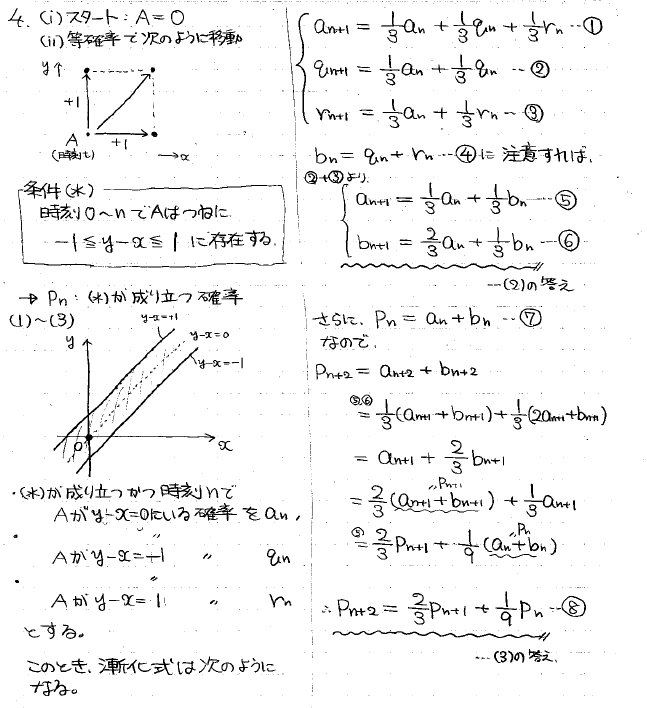 4. (i) スタート：A=0
(ii) 等確率で次のように移動
y↑
+1
A
+1
(時刻t)
→x
条件(*)
時刻0〜nでAはつねに
-1≦y-x≦1 に存在する.
→ Pn : (*)が成り立つ確率
(1)〜(3)
y-x=+1
y
y-x=0
y-x=-1
O
x
・(*)が成り立つかつ時刻nで
Aがy-x=0にいる確率をan,
・ 〃
Aがy-x=-1 〃 qn
・ 〃
Aがy-x=1 〃 rn
とする。
このとき、漸化式は次のように
なる。
an+1 = 1/3 an + 1/3 qn + 1/3 rn …①
qn+1 = 1/3 an + 1/3 qn …②
rn+1 = 1/3 an + 1/3 rn …③
bn = qn + rn …④に注意すれば、
②+③より
an+1 = 1/3 an + 1/3 bn …⑤
bn+1 = 2/3 an + 1/3 bn …⑥
…(2)の答え
さらに、Pn = an + bn …⑦
なので、
Pn+2 = an+2 + bn+2
⑤,⑥
= 1/3 (an+1 + bn+1) + 1/3 (2an+1 + bn+1)
= an+1 + 2/3 bn+1
〃Pn+1
= 2/3 (an+1 + bn+1) + 1/3 an+1
〃Pn
⑤= 2/3 Pn+1 + 1/9 (an + bn)
∴ Pn+2 = 2/3 Pn+1 + 1/9 Pn …⑧
…(3)の答え.